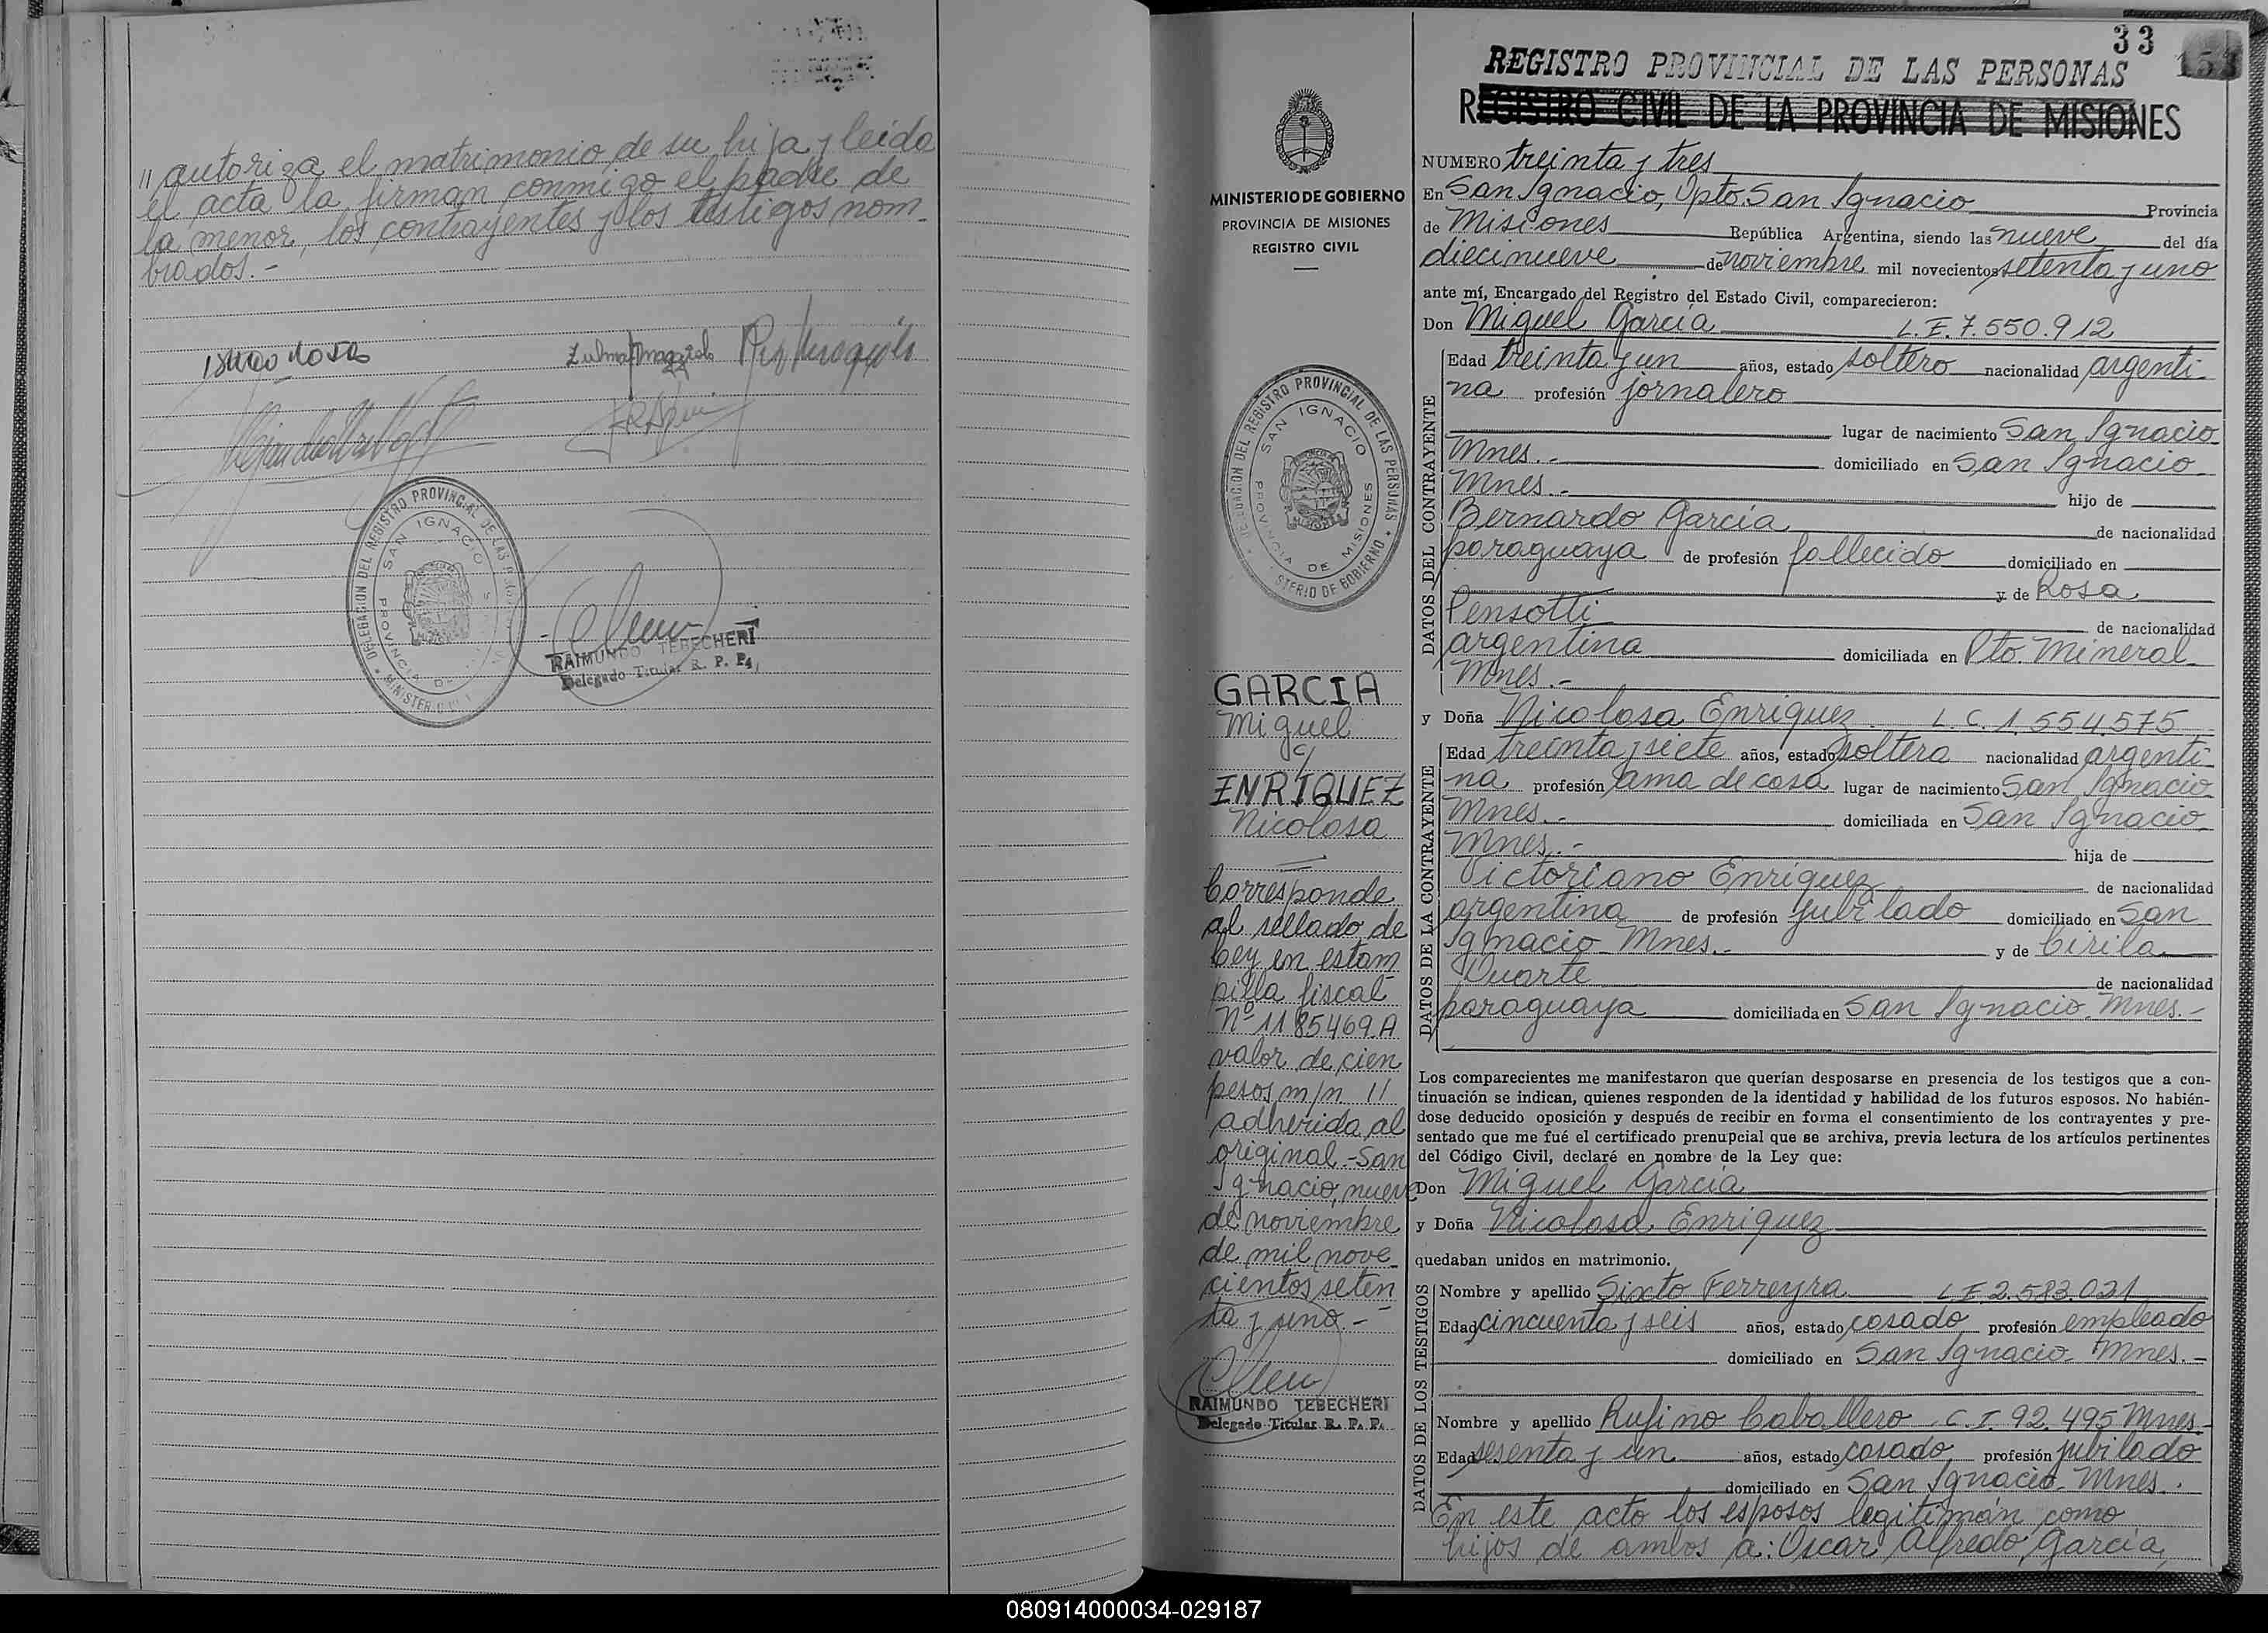 " autoriza el matrimonio de su hija y leida
el acta la firman conmigo el padre de
la menor, los contrayentes y los testigos nom-
brados.-
DELEGACION DEL REGISTRO PROVINCIAL DE LAS
SAN IGNACIO
PROVINCIA DE
MINISTERIO
RAIMUNDO TEBECHERI
Delegado Titular R. P. P.
33
REGISTRO PROVINCIAL DE LAS PERSONAS
REGISTRO CIVIL DE LA PROVINCIA DE MISIONES
MINISTERIO DE GOBIERNO
PROVINCIA DE MISIONES
REGISTRO CIVIL
DELEGACION DEL REGISTRO PROVINCIAL DE LAS PERSONAS
SAN IGNACIO
PROVINCIA DE MISIONES
STERIO DE GOBIERNO
GARCIA
Miguel
c/
ENRIQUEZ
Nicolasa
Corresponde
al sellado de
Ley en estam
pilla fiscal
Nº 1185469.A
valor de cien
pesos m/n 11
adherida al
original.-San
Ignacio, nueve
de noviembre
de mil nove-
cientos seten
ta y uno.-
RAIMUNDO TEBECHERI
Delegado Titular R. P. P.
NUMERO treinta y tres
En San Ignacio, Dpto. San Ignacio Provincia
de Misiones República Argentina, siendo las nueve del día
diecinueve de noviembre mil novecientos setenta y uno
ante mí, Encargado del Registro del Estado Civil, comparecieron:
Don Miguel García L.E. 7.550.912
DATOS DEL CONTRAYENTE
Edad treinta y un años, estado soltero nacionalidad argenti-
na profesión jornalero
lugar de nacimiento San Ignacio
Mnes.- domiciliado en San Ignacio
Mnes.- hijo de
Bernardo García de nacionalidad
paraguaya de profesión fallecido domiciliado en
y de Rosa
Pensotti de nacionalidad
argentina domiciliada en Pto. Mineral
Mnes.-
y Doña Nicolasa Enriquez L.C. 1.554.575
DATOS DE LA CONTRAYENTE
Edad treinta y siete años, estado soltera nacionalidad argenti-
na profesión ama de casa lugar de nacimiento San Ignacio
Mnes.- domiciliada en San Ignacio
Mnes.- hija de
Victoriano Enriquez de nacionalidad
argentina de profesión jubilado domiciliado en San
Ignacio Mnes.- y de Cirila
Duarte de nacionalidad
paraguaya domiciliada en San Ignacio. Mnes.-
Los comparecientes me manifestaron que querían desposarse en presencia de los testigos que a con-
tinuación se indican, quienes responden de la identidad y habilidad de los futuros esposos. No habién-
dose deducido oposición y después de recibir en forma el consentimiento de los contrayentes y pre-
sentado que me fué el certificado prenupcial que se archiva, previa lectura de los artículos pertinentes
del Código Civil, declaré en nombre de la Ley que:
Don Miguel García
y Doña Nicolasa Enriquez
quedaban unidos en matrimonio.
DATOS DE LOS TESTIGOS
Nombre y apellido Sixto Ferreyra L.E. 2.583.021
Edad cincuenta y seis años, estado casado profesión empleado
domiciliado en San Ignacio Mnes.-
Nombre y apellido Rufino Caballero C.I. 92.495 Mnes-
Edad sesenta y un años, estado casado profesión jubilado
domiciliado en San Ignacio Mnes.
En este acto los esposos legitiman como
hijos de ambos a: Oscar Alfredo García,
080914000034-029187